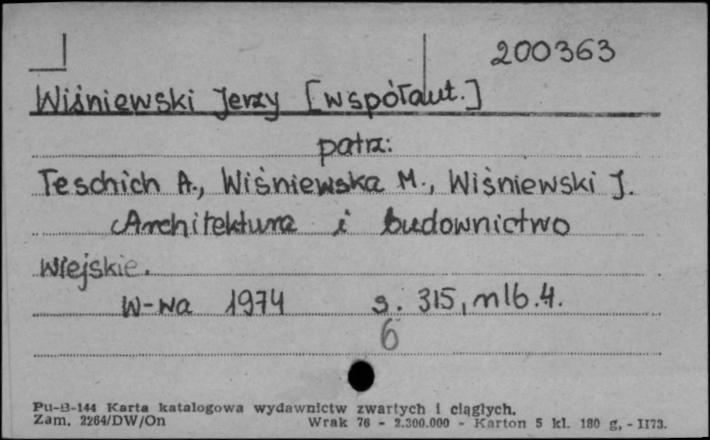 200363
Wiśniewski Jerzy [współaut.]
patrz:
Teschich A., Wiśniewska M., Wiśniewski J.
Architektura i budownictwo
wiejskie.
W-wa 1974 s. 315, nlb. 4.
6
Pu-B-144 Karta katalogowa wydawnictw zwartych i ciągłych.
Zam. 2264/DW/On Wrak 76 - 2.300.000 - Karton 5 kl. 180 g. - II73.